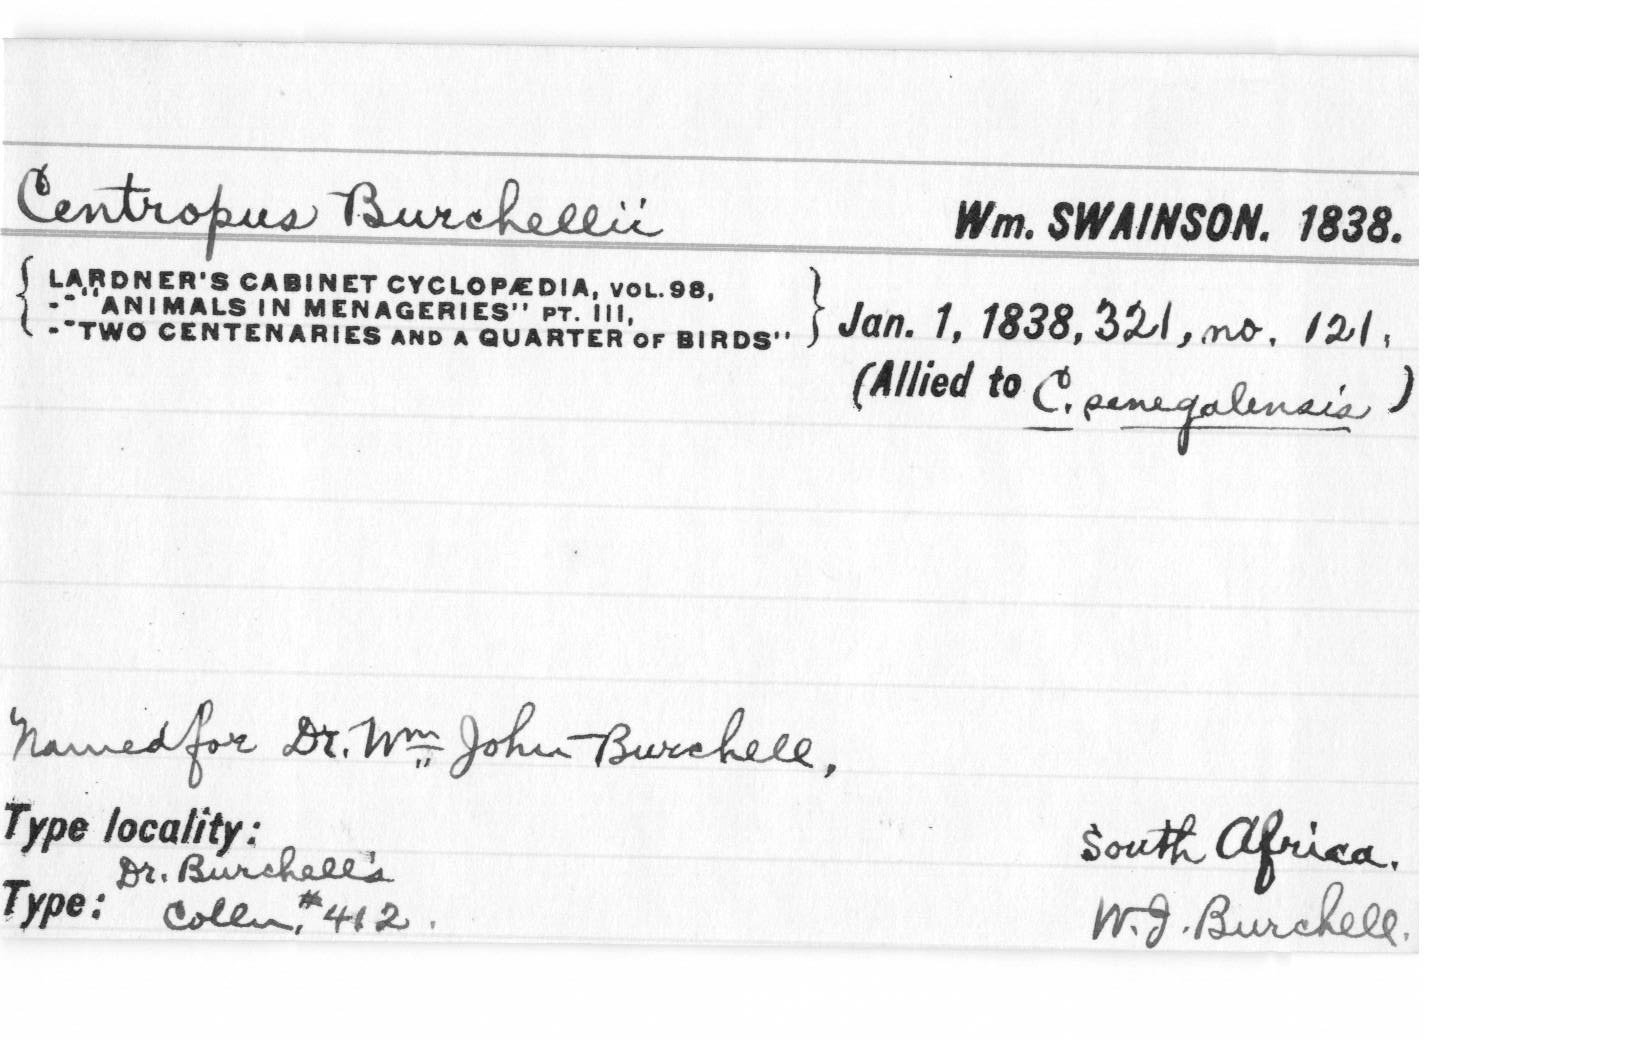 Centropus Burchellii Wm. SWAINSON. 1838.
{ LARDNER'S CABINET CYCLOPÆDIA, VOL. 98,
-"ANIMALS IN MENAGERIES" PT. III,
-"TWO CENTENARIES AND A QUARTER OF BIRDS" } Jan. 1, 1838, 321, no. 121,
(Allied to C. senegalensis)
Named for Dr. Wm John Burchell,
Type locality: South Africa.
Dr. Burchell's
Type: Colln, #412. W. J. Burchell.